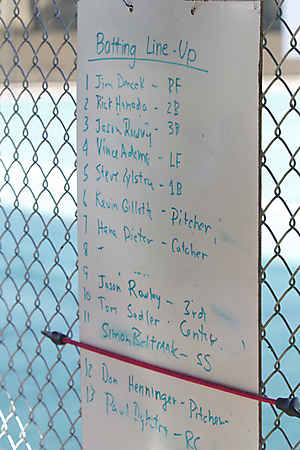 Batting Line-Up
1 Jim Dencek - RF
2 Rick Hamada - 2B
3 Jason Rowvy - 3B
4 Vince Adams - LF
5 Steve Zylstra - 1B
6 Kevin Gillette - Pitcher
7 Hans Dieter - Catcher
8
9 Jason Rowley - 3rd
10 Tom Sadler - Center
11 Simon Beltrank - SS
12 Don Henninger - Pitcher
13 Paul - RC